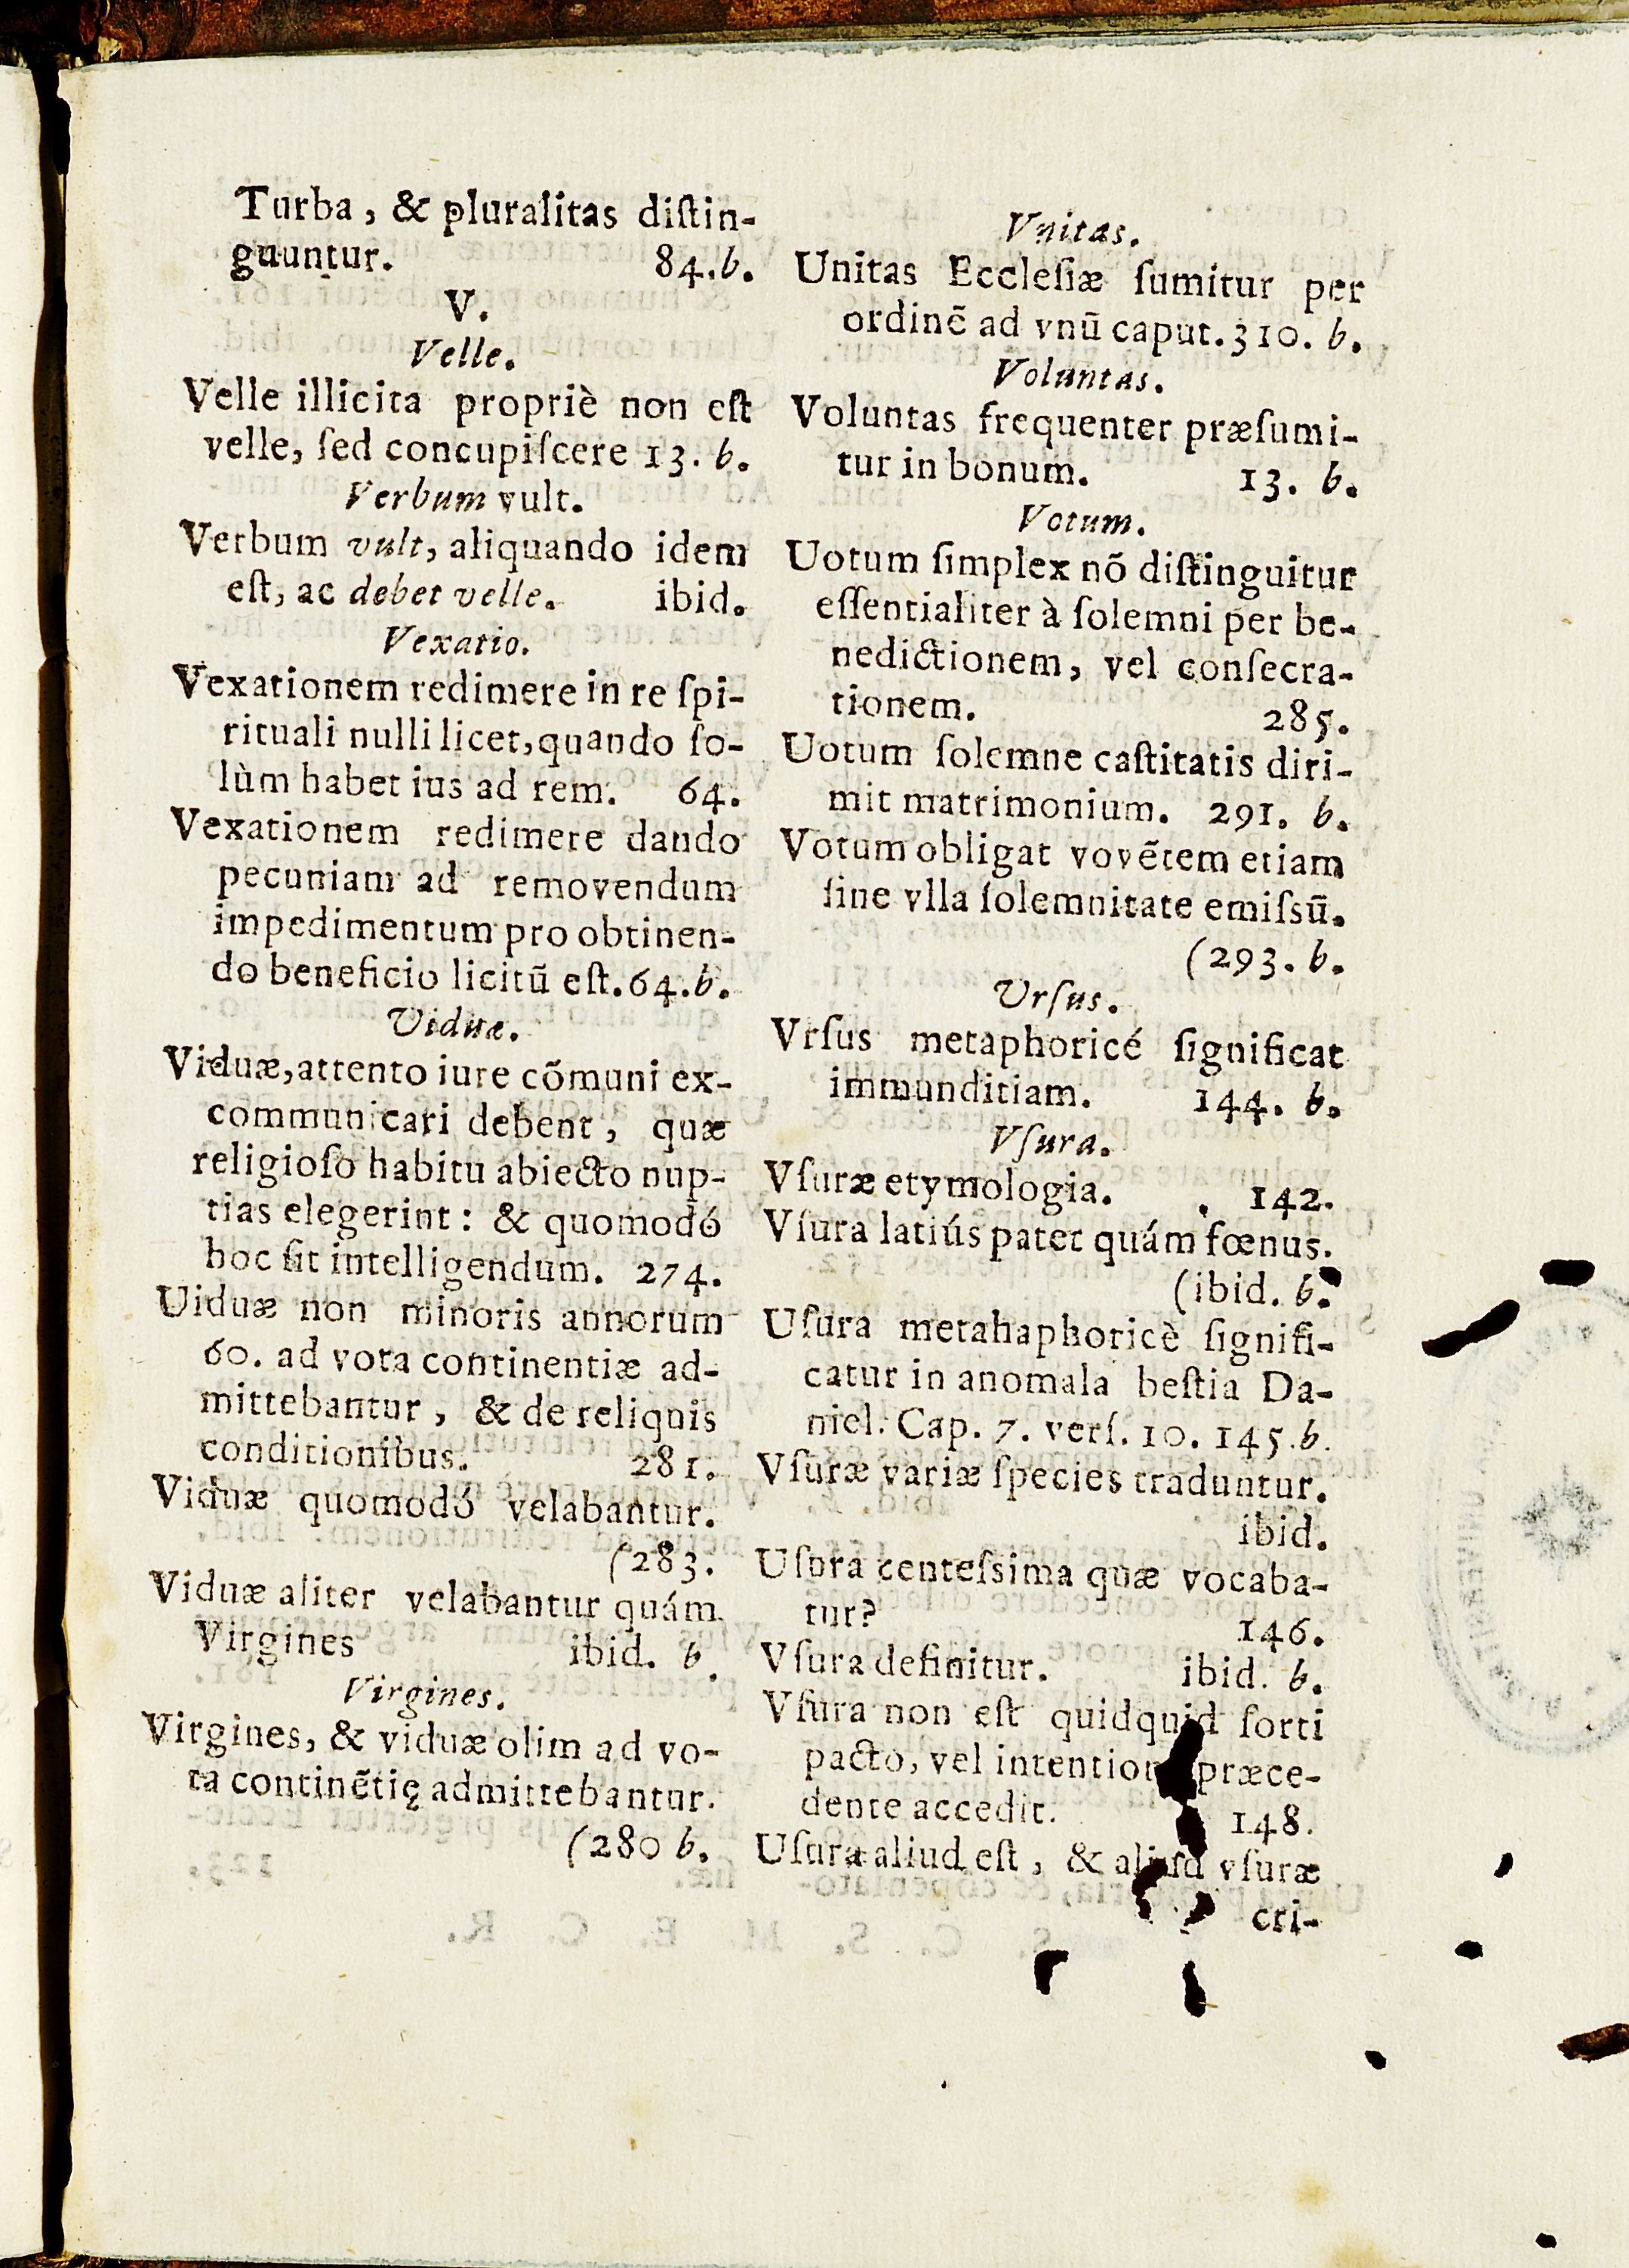 Turba, & pluralitas diſtin-
guuntur. 84.b.
V.
Velle.
Velle illicita propriè non eſt
velle, ſed concupiſcere 13. b.
Verbum vult.
Verbum vult, aliquando idem
eſt, ac debet velle. ibid.
Vexatio.
Vexationem redimere in re ſpi-
rituali nulli licet, quando ſo-
lùm habet ius ad rem. 64.
Vexationem redimere dando
pecuniam ad removendum
impedimentum pro obtinen-
do beneficio licitũ eſt. 64.b.
Viduæ.
Viduæ, attento iure cõmuni ex-
communicari debent, quæ
religioſo habitu abiecto nup-
tias elegerint: & quomodó
hoc ſit intelligendum. 274.
Uiduæ non minoris annorum
60. ad vota continentiæ ad-
mittebantur, & de reliquis
conditionibus. 281.
Viduæ quomodó velabantur.
(283.
Viduæ aliter velabantur quám
Virgines ibid. b.
Virgines.
Virgines, & viduæ olim ad vo-
ta continẽtię admittebantur.
(280 b.
Vnitas.
Unitas Eccleſiæ ſumitur per
ordinẽ ad vnũ caput. 310. b.
Voluntas.
Voluntas frequenter præſumi-
tur in bonum. 13. b.
Votum.
Uotum ſimplex nõ diſtinguitur
eſſentialiter à ſolemni per be-
nedictionem, vel conſecra-
tionem. 285.
Uotum ſolemne caſtitatis diri-
mit matrimonium. 291. b.
Votum obligat vovẽtem etiam
ſine vlla ſolemnitate emiſsũ.
(293. b.
Urſus.
Vrſus metaphoricé ſignificat
immunditiam. 144. b.
Vſura.
Vſuræ etymologia. 142.
Vſura latiús patet quám fœnus.
(ibid. b.
Uſura metahaphoricè ſignifi-
catur in anomala beſtia Da-
niel. Cap. 7. verſ. 10. 145.b.
Vſuræ variæ ſpecies traduntur.
ibid.
Uſura centeſsima quæ vocaba-
tur? 146.
Vſura definitur. ibid. b.
Vſura non eſt quidquid ſorti
pacto, vel præce-
dente accedit. 148.
Uſura aliud eſt, & aliud vſuræ
cri-